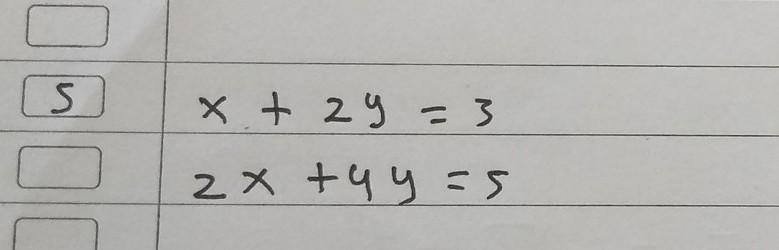 5 x + 2y = 3
2x + 4y = 5